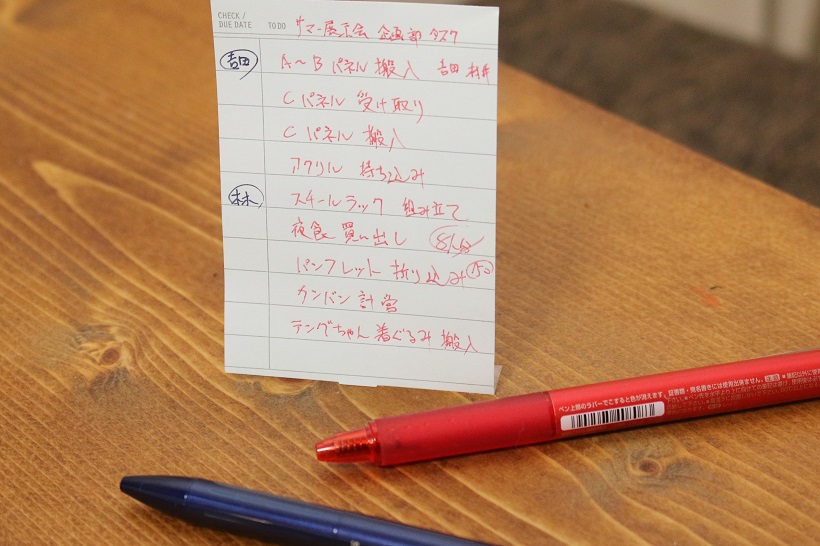 CHECK / DUE DATE TO DO サマー展示会 企画部 タスク
吉田 A〜B パネル 搬入 吉田
C パネル 受け取り
C パネル 搬入
アクリル 持ち込み
林 スチールラック 組み立て
夜食 買い出し 8人分
パンフレット 折り込み 150
カンバン 計営
テングちゃん 着ぐるみ 搬入
ペン上部のラバーでこすると色が消えます。証書類・宛名書きには使用出来ません。